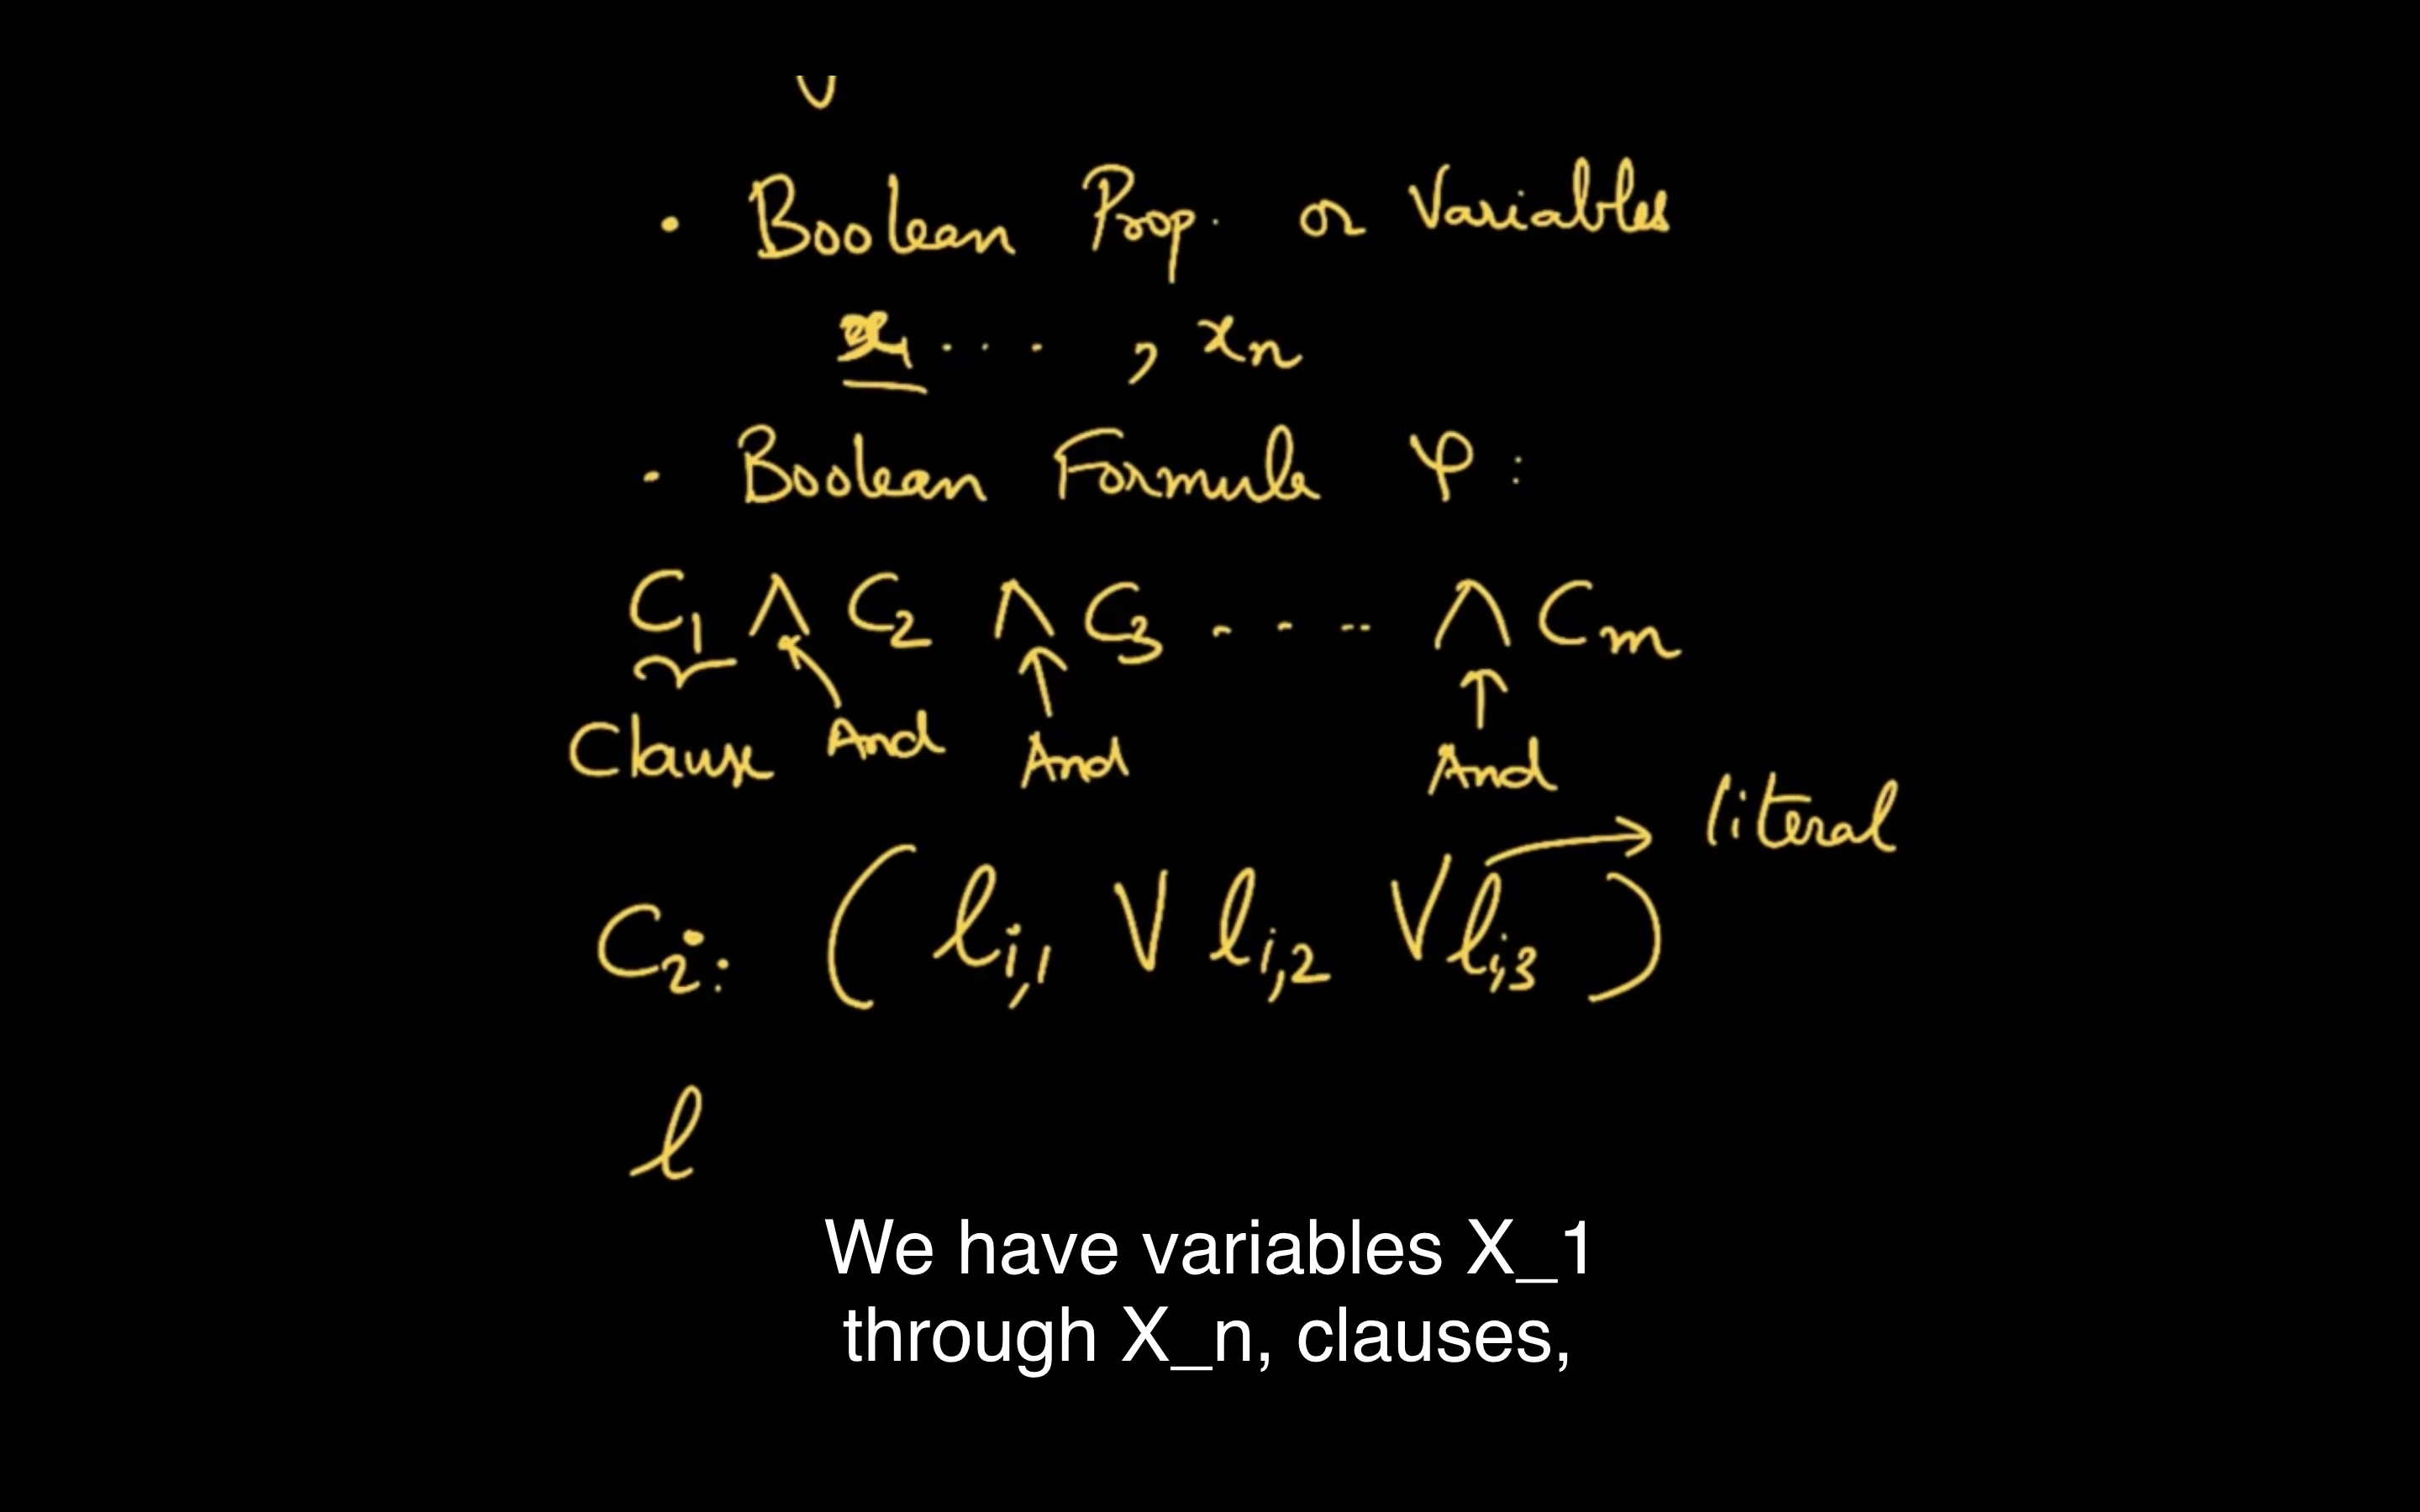 • Boolean Prop. or Variables
x₁ . . . , xₙ
• Boolean Formula φ :
C₁ ∧ C₂ ∧ C₃ - - - - ∧ Cₘ
Clause And And And
literal
C₂: ( lᵢ,₁ ∨ lᵢ,₂ ∨ lᵢ,₃ )
l
We have variables X_1
through X_n, clauses,